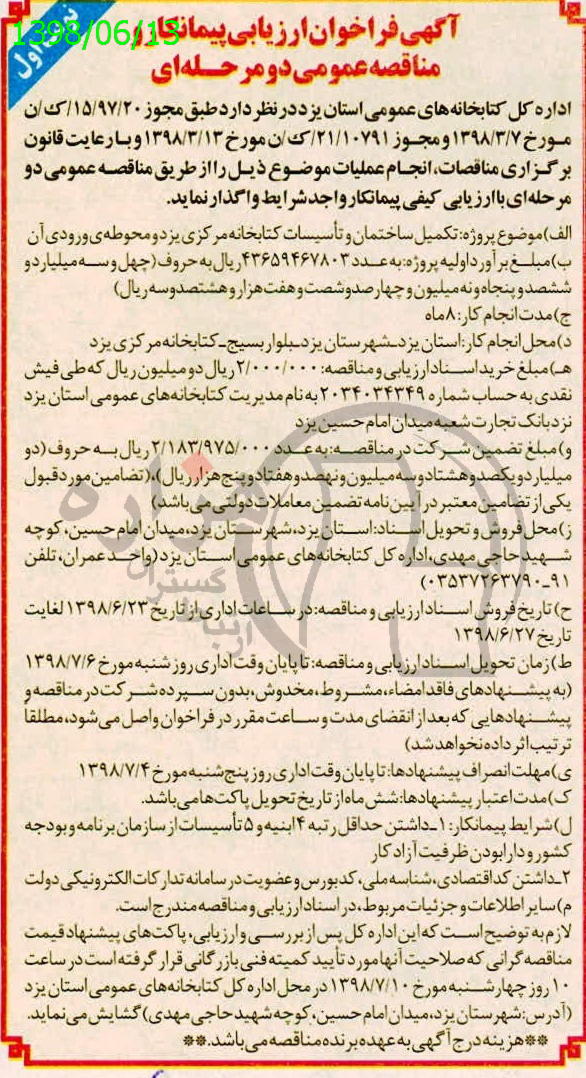 1398/06/13
نوبت اول
آگهی فراخوان ارزیابی پیمانکار و
مناقصه عمومی دو مرحله‌ای
اداره کل کتابخانه‌های عمومی استان یزد در نظر دارد طبق مجوز ۱۵/۹۷/۲۰/ک/ن
مورخ ۱۳۹۸/۳/۷ و مجوز ۲۱/۱۰۷۹۱/ک/ن مورخ ۱۳۹۸/۳/۱۳ و با رعایت قانون
برگزاری مناقصات، انجام عملیات موضوع ذیل را از طریق مناقصه عمومی دو
مرحله‌ای با ارزیابی کیفی پیمانکار واجد شرایط واگذار نماید.
الف) موضوع پروژه: تکمیل ساختمان و تأسیسات کتابخانه مرکزی یزد و محوطه‌ی ورودی آن
ب) مبلغ برآورد اولیه پروژه: به عدد ۴۳۶۵۹۴۶۷۸۰۳ ریال به حروف (چهل و سه میلیارد و
ششصد و پنجاه و نه میلیون و چهارصد و شصت و هفت هزار و هشتصد و سه ریال)
ج) مدت انجام کار: ۸ ماه
د) محل انجام کار: استان یزد ـ شهرستان یزد ـ بلوار بسیج ـ کتابخانه مرکزی یزد
هـ) مبلغ خرید اسناد ارزیابی و مناقصه: ۲/۰۰۰/۰۰۰ ریال دو میلیون ریال که طی فیش
نقدی به حساب شماره ۲۰۳۴۰۳۴۳۴۹ به نام مدیریت کتابخانه‌های عمومی استان یزد
نزد بانک تجارت شعبه میدان امام حسین یزد
و) مبلغ تضمین شرکت در مناقصه: به عدد ۲/۱۸۳/۹۷۵/۰۰۰ ریال به حروف (دو
میلیارد و یکصد و هشتاد و سه میلیون و نهصد و هفتاد و پنج هزار ریال)، (تضامین مورد قبول
یکی از تضامین معتبر در آیین نامه تضمین معاملات دولتی می‌باشد)
ز) محل فروش و تحویل اسناد: استان یزد، شهرستان یزد، میدان امام حسین، کوچه
شهید حاجی مهدی، اداره کل کتابخانه‌های عمومی استان یزد (واحد عمران، تلفن
۹۱ـ۰۳۵۳۷۲۶۳۷۹۰)
ح) تاریخ فروش اسناد ارزیابی و مناقصه: در ساعات اداری از تاریخ ۱۳۹۸/۶/۲۳ لغایت
تاریخ ۱۳۹۸/۶/۲۷
ط) زمان تحویل اسناد ارزیابی و مناقصه: تا پایان وقت اداری روز شنبه مورخ ۱۳۹۸/۷/۶
(به پیشنهادهای فاقد امضاء، مشروط، مخدوش، بدون سپرده شرکت در مناقصه و
پیشنهادهایی که بعد از انقضای مدت و ساعت مقرر در فراخوان واصل می‌شود، مطلقاً
ترتیب اثر داده نخواهد شد)
ی) مهلت انصراف پیشنهادها: تا پایان وقت اداری روز پنج شنبه مورخ ۱۳۹۸/۷/۴
ک) مدت اعتبار پیشنهادها: شش ماه از تاریخ تحویل پاکت‌ها می‌باشد.
ل) شرایط پیمانکار: ۱ـ داشتن حداقل رتبه ۴ ابنیه و ۵ تأسیسات از سازمان برنامه و بودجه
کشور و دارا بودن ظرفیت آزاد کار
۲ـ داشتن کد اقتصادی، شناسه ملی، کد بورس و عضویت در سامانه تدارکات الکترونیکی دولت
م) سایر اطلاعات و جزئیات مربوط، در اسناد ارزیابی و مناقصه مندرج است.
لازم به توضیح است که این اداره کل پس از بررسی و ارزیابی، پاکت‌های پیشنهاد قیمت
مناقصه گرانی که صلاحیت آنها مورد تأیید کمیته فنی بازرگانی قرار گرفته است در ساعت
۱۰ روز چهارشنبه مورخ ۱۳۹۸/۷/۱۰ در محل اداره کل کتابخانه‌های عمومی استان یزد
(آدرس: شهرستان یزد، میدان امام حسین، کوچه شهید حاجی مهدی) گشایش می‌نماید.
**هزینه درج آگهی به عهده برنده مناقصه می‌باشد.**